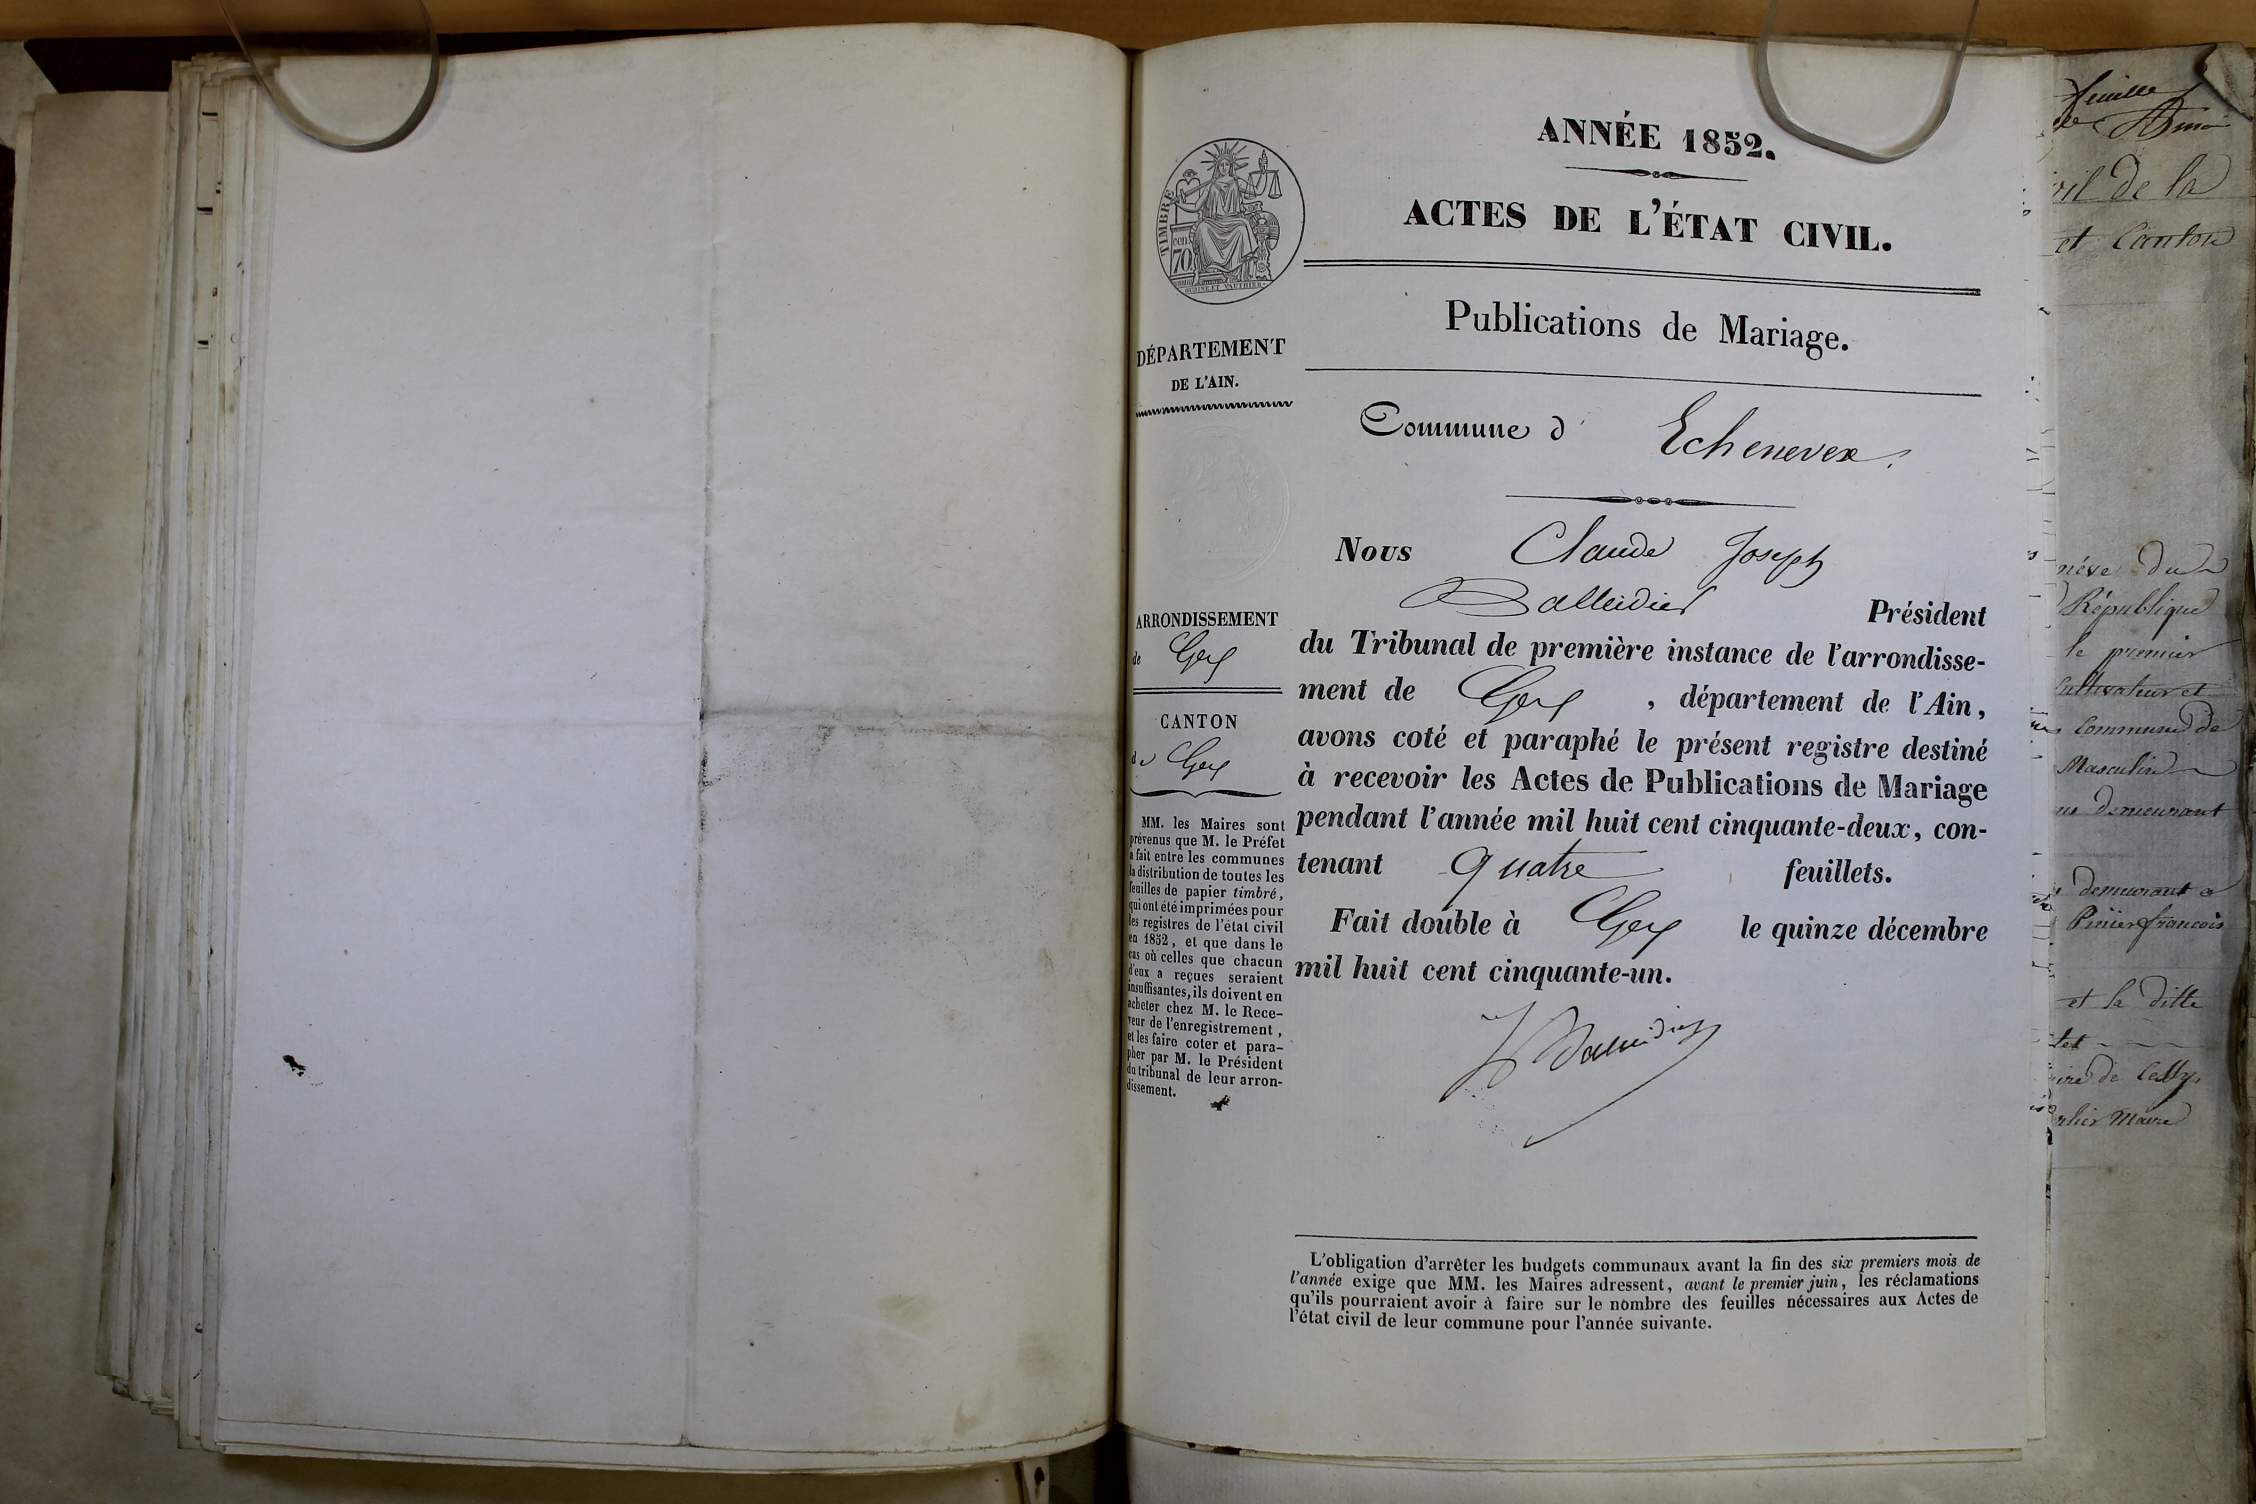 ANNÉE 1852.
ACTES DE L'ÉTAT CIVIL.
TIMBRE
cen.
70
OUDINE ET VAUTHIER
Publications de Mariage.
DÉPARTEMENT
DE L'AIN.
Commune d' Echenevex.
Nous Claude Joseph
Balleidier Président
du Tribunal de première instance de l'arrondisse-
ment de Gex , département de l'Ain,
avons coté et paraphé le présent registre destiné
à recevoir les Actes de Publications de Mariage
pendant l'année mil huit cent cinquante-deux, con-
tenant quatre feuillets.
Fait double à Gex le quinze décembre
mil huit cent cinquante-un.
Balleidier
ARRONDISSEMENT
de Gex
CANTON
de Gex
MM. les Maires sont
prévenus que M. le Préfet
a fait entre les communes
la distribution de toutes les
feuilles de papier timbré,
qui ont été imprimées pour
les registres de l'état civil
en 1852, et que dans le
cas où celles que chacun
d'eux a reçues seraient
insuffisantes, ils doivent en
acheter chez M. le Rece-
veur de l'enregistrement,
et les faire coter et para-
pher par M. le Président
du tribunal de leur arron-
dissement.
L'obligation d'arrêter les budgets communaux avant la fin des six premiers mois de
l'année exige que MM. les Maires adressent, avant le premier juin, les réclamations
qu'ils pourraient avoir à faire sur le nombre des feuilles nécessaires aux Actes de
l'état civil de leur commune pour l'année suivante.
feuille
de la
et Canton
du
République
le premier
Cultivateur et
Commune de
Masculin
demeurant
demeurant a
françois
et la ditte
de Cessy
Maire